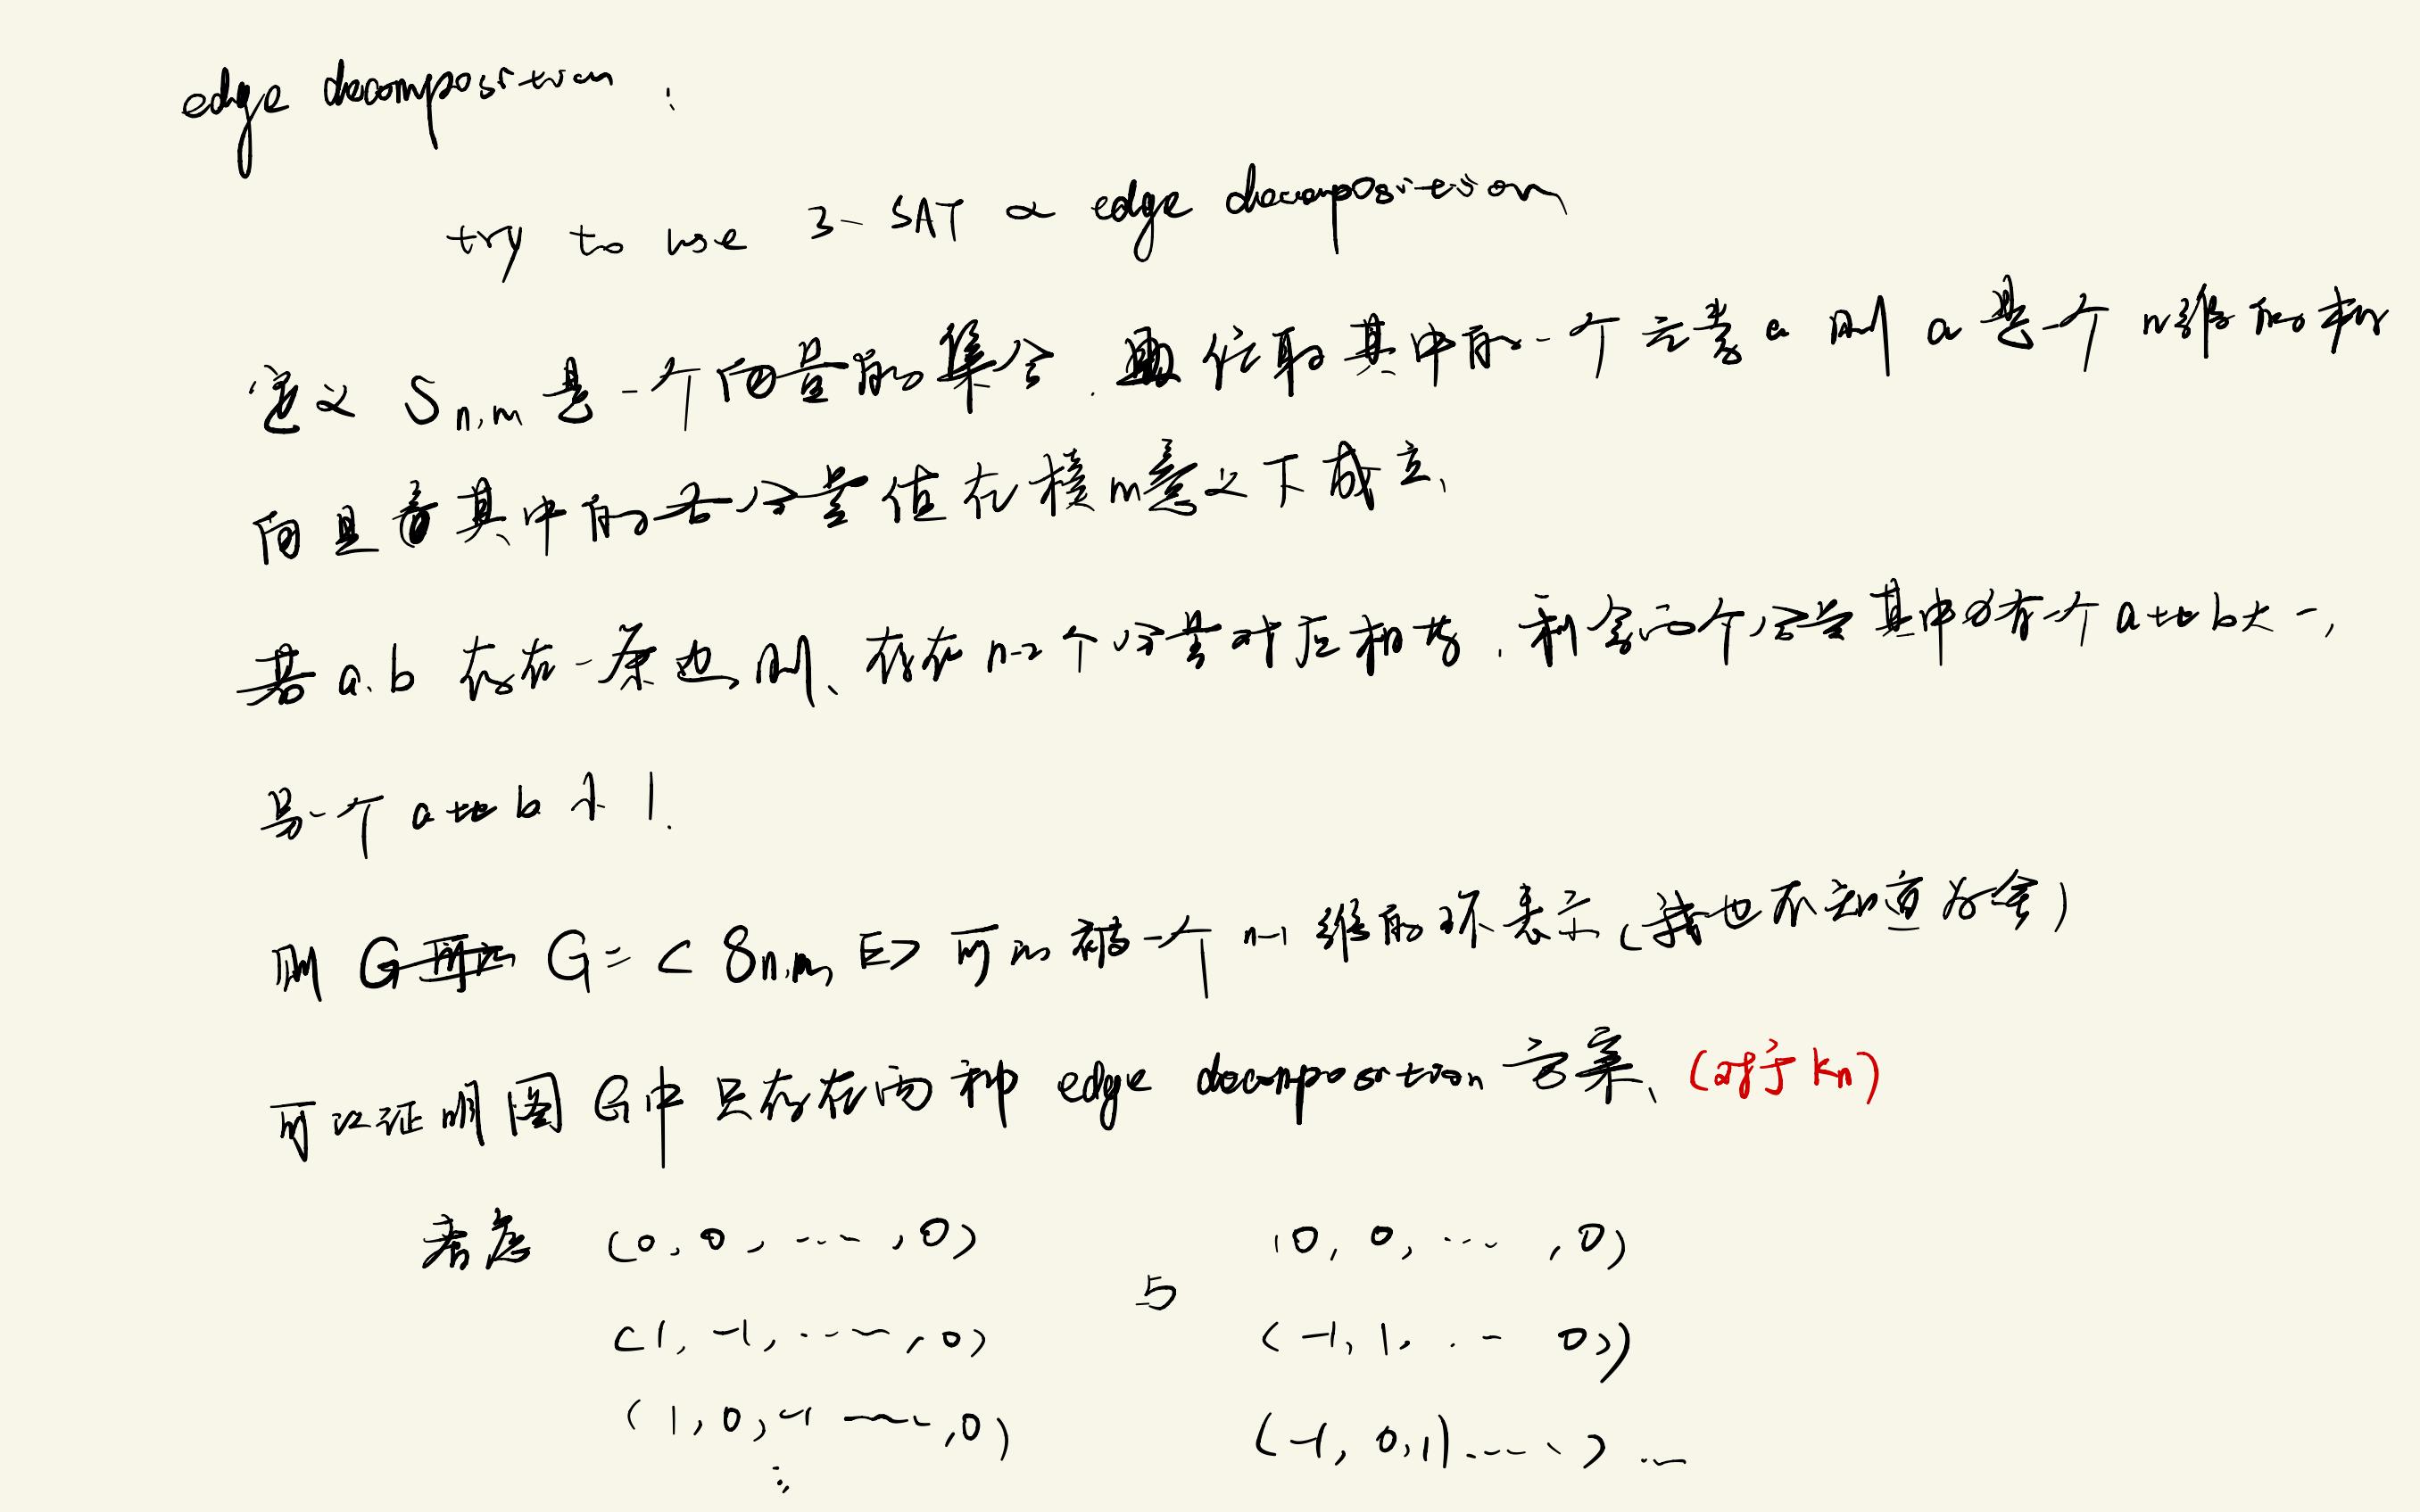 edge decomposition :
try to use 3-SAT ∝ edge decomposition
定义 Sn,m 是一个向量的集合. 任取其中的一个元素a 则 a 是一个 n维的
向且其中的各分量值在模m意义下成立、
若 a、b 存在一条边, 则、存在 n-2 个分量对应相等, 剩余两个分量其中有一个 a比b大一,
另一个 a比b小1.
则 G G = < Sn,m, E> 可以被一个 n-1 维的环表示 (我也不知道为啥)
可以证明图 G中只存在两种 edge decomposition 方案、(对于 Kn)
考虑 (0, 0, ... , 0) 与 (0, 0, ... , 0)
(1, -1, ... , 0) (-1, 1, ... 0))
(1, 0, -1 ... , 0) (-1, 0, 1) .... ) ...
⋮